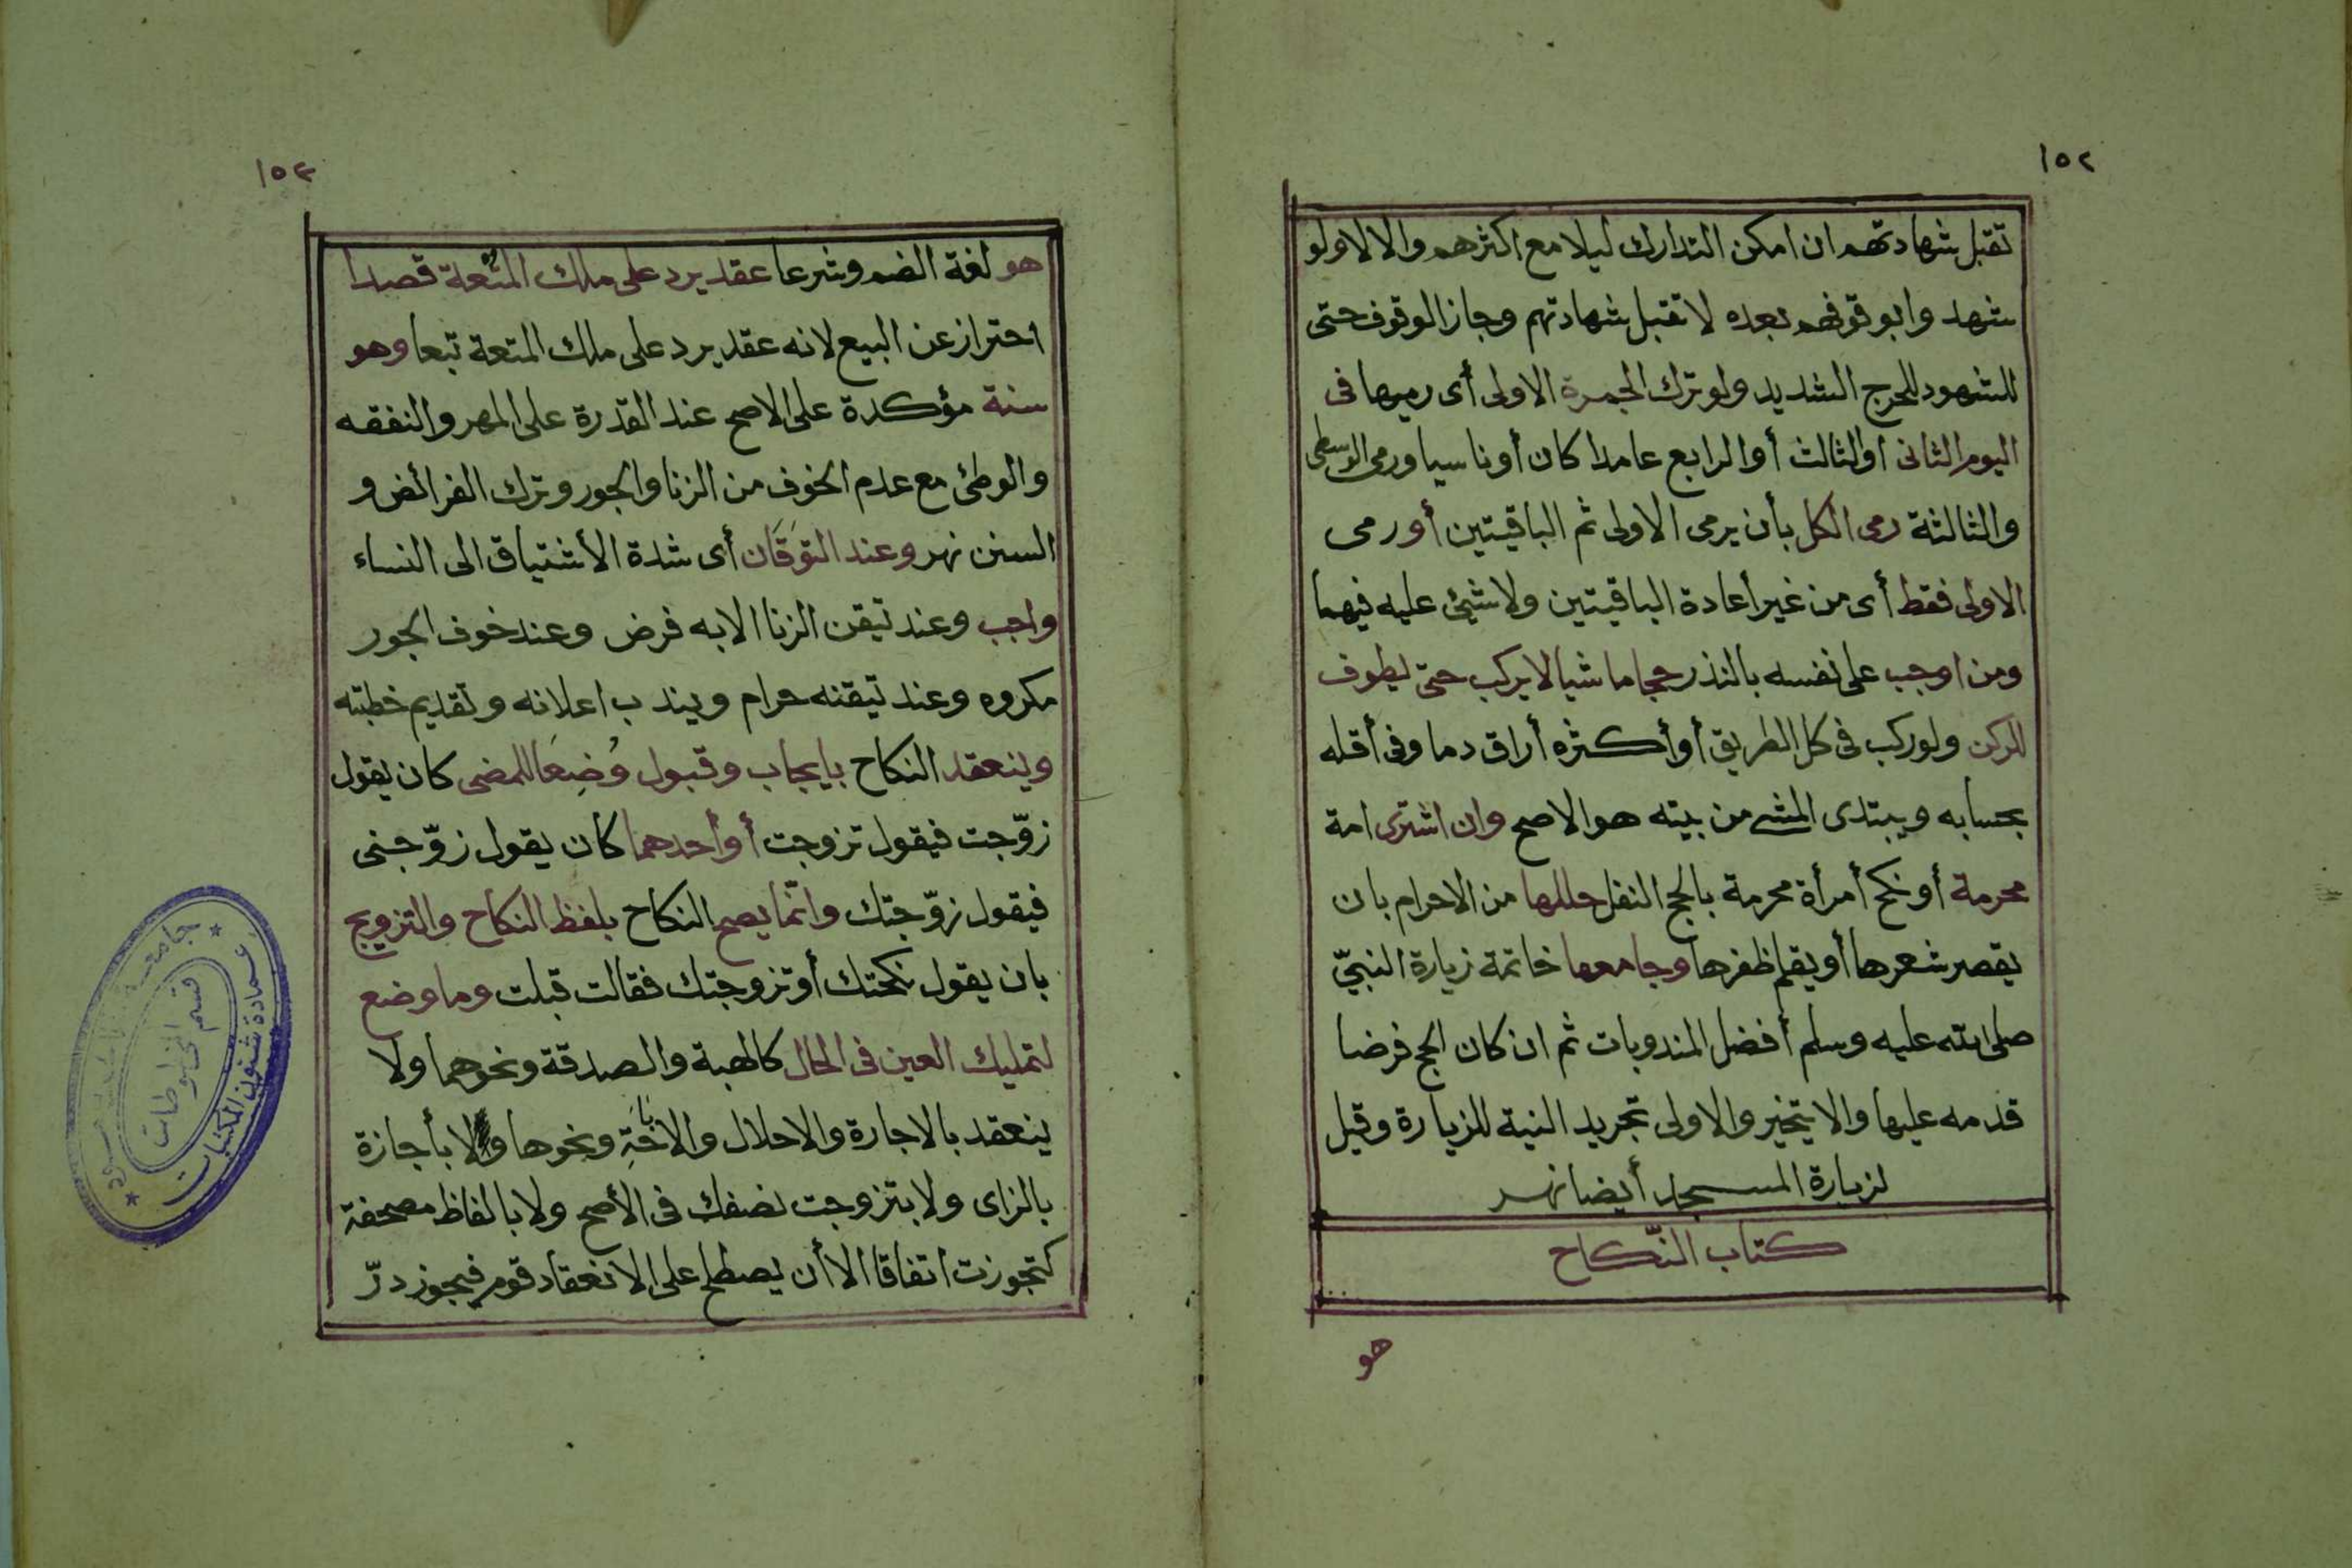 ١٥٢
تقبل شهادتهم ان امكن التدارك ليلا مع اكثرهم والا لا ولو
شهد وابوقوفهم بعده لا تقبل شهادتهم وجاز الوقوف حتى
للشهود للحرج الشديد ولو ترك الجمرة الاولى أى رميها فى
اليوم الثانى اوالثالث أوالرابع عامدا كان أوناسيا ورمى الوسطى
والثالثة رمى الكل بأن يرمى الاولى ثم الباقيتين أو رمى
الاولى فقط أى من غير أعادة الباقيتين ولا شيئ عليه فيهما
ومن اوجب على نفسه بالنذر حجا ماشيا لا يركب حتى يطوف
للركن ولو ركب فى كل الطريق أو أكثره أراق دما وفى أقله
بحسابه ويبتدى المشى من بيته هو الاصح وان اشترى امة
محرمة أو نكح أمرأة محرمة بالحج النفل حللها من الاحرام بان
يقصر شعرها أو يقلم ظفرها وجامعها خاتمة زيارة النبيّ
صلى الله عليه وسلم أفضل المندوبات ثم ان كان الحج فرضا
قدمه عليها والا يتخير والاولى تجريد النية للزيارة وقيل
لزيارة المسجد أيضا نهر
كتاب النّكاح
هو
١٥٣
هو لغة الضم وشرعا عقد يرد على ملك المتعة قصدا
احتراز عن البيع لانه عقد يرد على ملك المتعة تبعا وهو
سنة مؤكدة على الاصح عند القدرة على المهر والنفقه
والوطئ مع عدم الخوف من الزنا والجور وترك الفرائض و
السنن نهر وعند التوَقَان أى شدة الأشتياق الى النساء
واجب وعند تيقن الزنا الا به فرض وعند خوف الجور
مكروه وعند تيقنه حرام ويندب اعلانه وتقديم خطبته
وينعقد النكاح بايجاب وقبول وُضِعَا للمضى كان يقول
زوّجت فيقول تزوجت أو أحدهما كأن يقول زوّجنى
فيقول زوّجتك وانّما يصح النكاح بلفظ النكاح والتزويج
بان يقول نكحتك أو تزوجتك فقالت قبلت وما وضع
لتمليك العين فى الحال كالهبة والصدقة ونحوهما ولا
ينعقد بالاجارة والاحلال والاباحَةِ ونحوها ولا بأجازة
بالزاى ولا بتزوجت نصفك فى الأصح ولا بالفاظ مصحفة
كتجوزت اتفاقا الا أن يصطلح على الانعقاد قوم فيجوز درّ
عمادة شئون المكتبات
جامعة
قسم المخطوطات